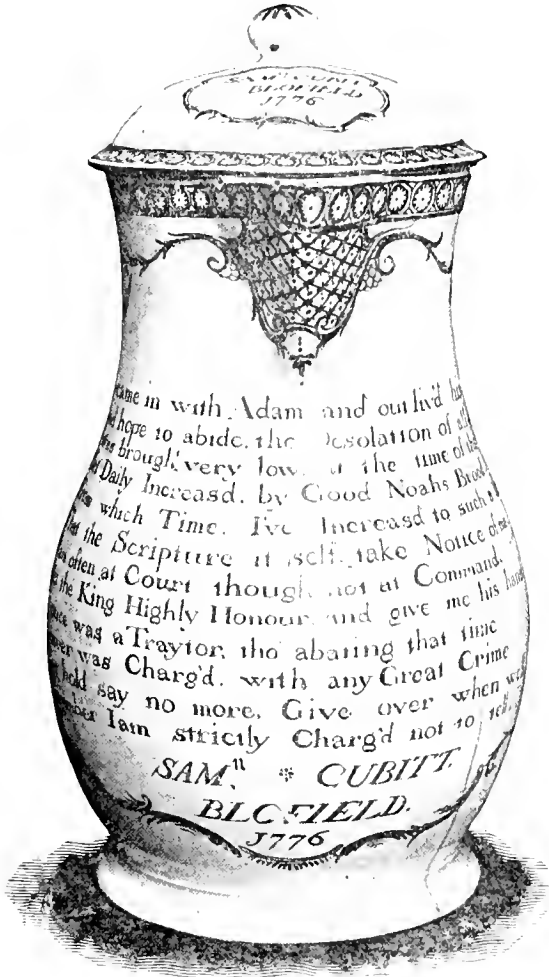 SAM.ll CUBITT
BLOFIELD
1776
came in with Adam and out liv'd
hope to abide. the Desolation of
brough very low. at the time of
Daily Increasd. by Good Noahs Brood
which Time. I've Increasd to such
the Scripture it self. take Notice of
often at Court though not at Command.
the King Highly Honour and give me his hand
was a Traytor. tho' abating that time
was Charg'd. with any Great Crime
hold say no more. Give over when
I am strictly Charg'd not to tell.
SAM.ll CUBITT.
BLOFIELD.
1776